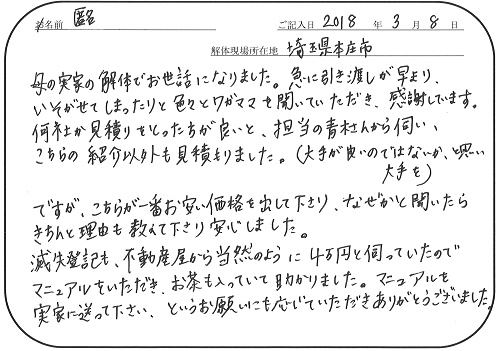 お名前 匿名 ご記入日 2018 年 3 月 8 日
解体現場所在地 埼玉県本庄市
母の実家の解体でお世話になりました。急に引き渡しが早まり、
いそがせてしまったりと色々とワガママを聞いていただき、感謝しています。
何社か見積りをとった方が良いと、担当の青木さんから伺い、
こちらの紹介以外も見積もりました。(大手が良いのではないか、と思い
大手を)
ですが、こちらが一番お安い価格を出して下さり、なぜかと聞いたら
きちんと理由も教えて下さり安心しました。
滅失登記も、不動産屋から当然のように4万円と伺っていたので
マニュアルをいただき、お茶も入っていて助かりました。マニュアルを
実家に送って下さい、というお願いにも応じていただきありがとうございました。